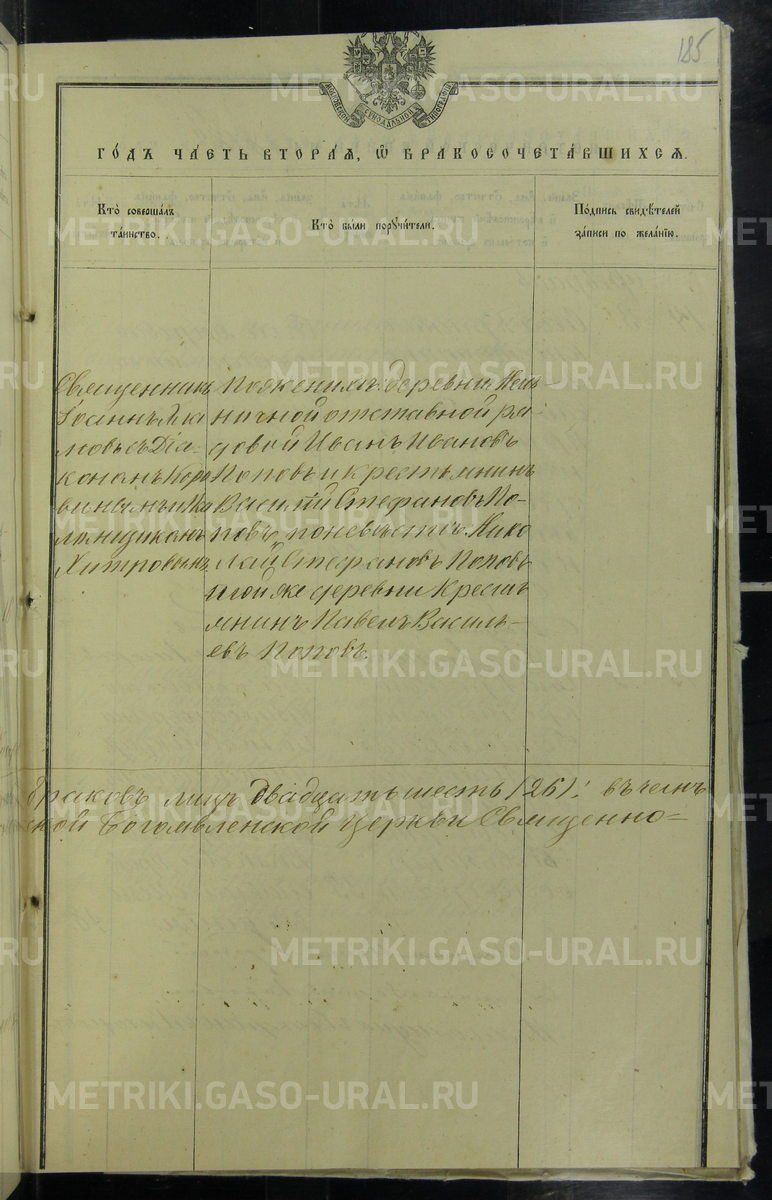 185
МОСКОВСКОЙ СѴНОДАЛЬНОЙ ТИПОГРАФІИ
ГО́ДЪ ЧА́СТЬ ВТОРА́Я, Ѡ БРАКОСОЧЕТА́ВШИХСЯ.
Кто̀ соверша́лъ
та́инство.
Кто̀ бы́ли поручи́тели.
По́дпись свидѣ́телей
за́писи по жела́нію.
Священникъ
Іоаннъ
съ Діа-
кономъ
Хитровымъ
По женихѣ: деревни
отставной ря
довой Иванъ Ивановъ
Поповъ и крестьянинъ
Василій Стефановъ По-
повъ, по невѣстѣ: Нико
лай Стефановъ Поповъ
и той же деревни Кресть
янинъ Павелъ Василь-
евъ Поповъ.
браковъ лицъ двадцать шесть (26);
ской Богоявленской церкви Священно=
METRIKI.GASO-URAL.RU